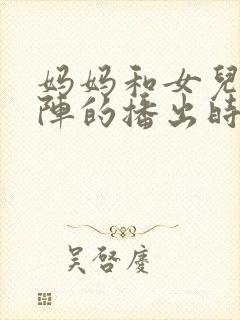 妈妈和女兒
陣的播出時
吴啓慶